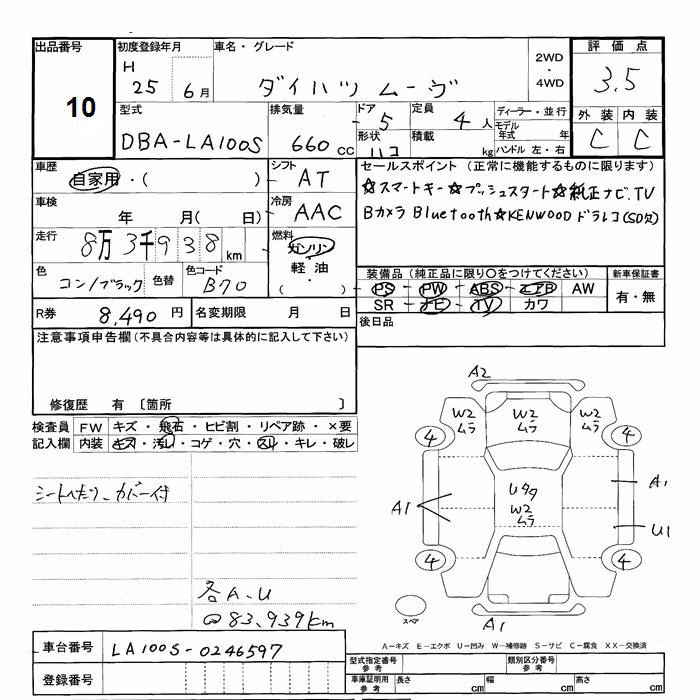 出品番号 10
初度登録年月 H 25 6月
車名・グレード ダイハツ ムーヴ
2WD・4WD
評価点 3.5
外装 C 内装 C
型式 DBA-LA100S
排気量 660cc
ドア 5
定員 4人
形状 ハコ
積載 kg
ディーラー・並行
モデル年式 年
ハンドル 左・右
車歴 自家用・( )
シフト AT
車検 年 月( 日)
冷房 AAC
走行 8万3千938km
燃料 ガソリン・軽油・( )
色 コン/ブラック
色替
色コード B70
R券 8,490円
名変期限 月 日
セールスポイント(正常に機能するものに限ります)
☆スマートキー☆プッシュスタート☆純正ナビ、TV
Bカメラ Bluetooth☆KENWOODドラレコ(SD欠)
装備品(純正品に限り○をつけてください)
PS PW ABS エアB AW
SR ナビ TV カワ
新車保証書
有・無
後日品
注意事項申告欄(不具合内容等は具体的に記入して下さい)
修復歴 有 [箇所 ]
検査員記入欄
FW キズ・飛石・ヒビ割・リペア跡・×要
内装 キズ・汚レ・コゲ・穴・スレ・キレ・破レ
シートへたり、カバー付
各A.U
@83,939km
A2
W2 ムラ
W2 ムラ
W2 ムラ
4
4
Uタタ
W2 ムラ
A1
A1
U1
4
4
スペア
A1
A-キズ E-エクボ U-凹み W-補修跡 S-サビ C-腐食 XX-交換済
車台番号 LA100S-0246597
登録番号
型式指定番号 参考
類別区分番号 参考
車庫証明用 参考
長さ cm
幅 cm
高さ cm